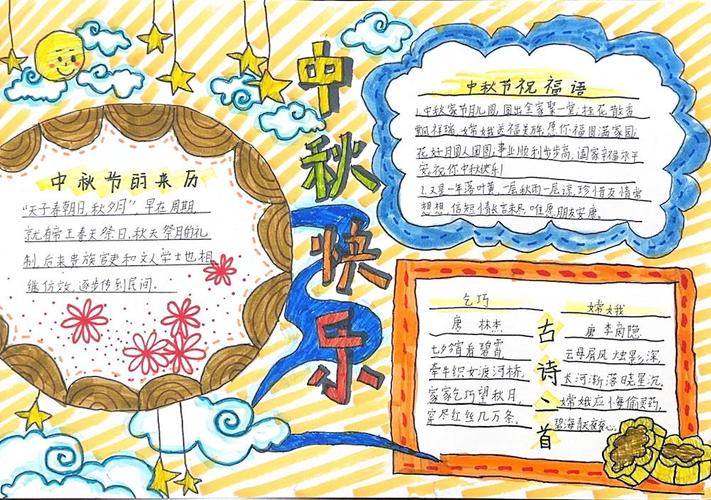 中秋快乐
中秋节的来历
"天子春朝日,秋夕月",早在周期,
就有帝王春天祭日,秋天祭月的礼
制,后来贵族官吏和文人学士也相
继仿效,逐步传到民间。
中秋节祝福语
1.中秋家节月儿圆,团出全家聚一堂;桂花散香
飘祥瑞,嫦娥送福美;你福圆满家园;
花好月圆人团圆;事业顺利步步高,阖家幸福永平
安,祝你中秋快乐!
2.又是一年落叶黄,一层秋雨一层凉,珍惜友情常
想想,信短情长言未尽,唯愿朋友安康。
古诗二首
乞巧
唐 林杰
七夕今宵看碧霄,
牵牛织女渡河桥。
家家乞巧望秋月,
穿尽红丝几万条。
嫦娥
唐 李商隐
云母屏风烛影深,
长河渐落晓星沉。
嫦娥应悔偷灵药,
碧海青天夜夜心。